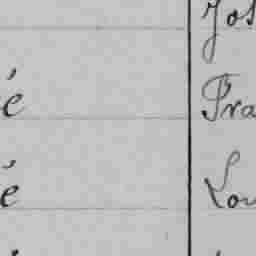 Jos
é Fra
é Lou